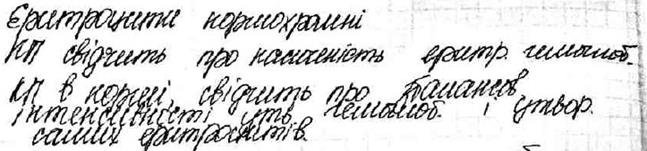 Еритроцити нормохромні
КП свідчить про насиченість еритр. гемоглоб.
КП в нормі, свідчить про баланс в
інтенсивності утв. гемоглоб. і утвор.
самих еритроцитів.